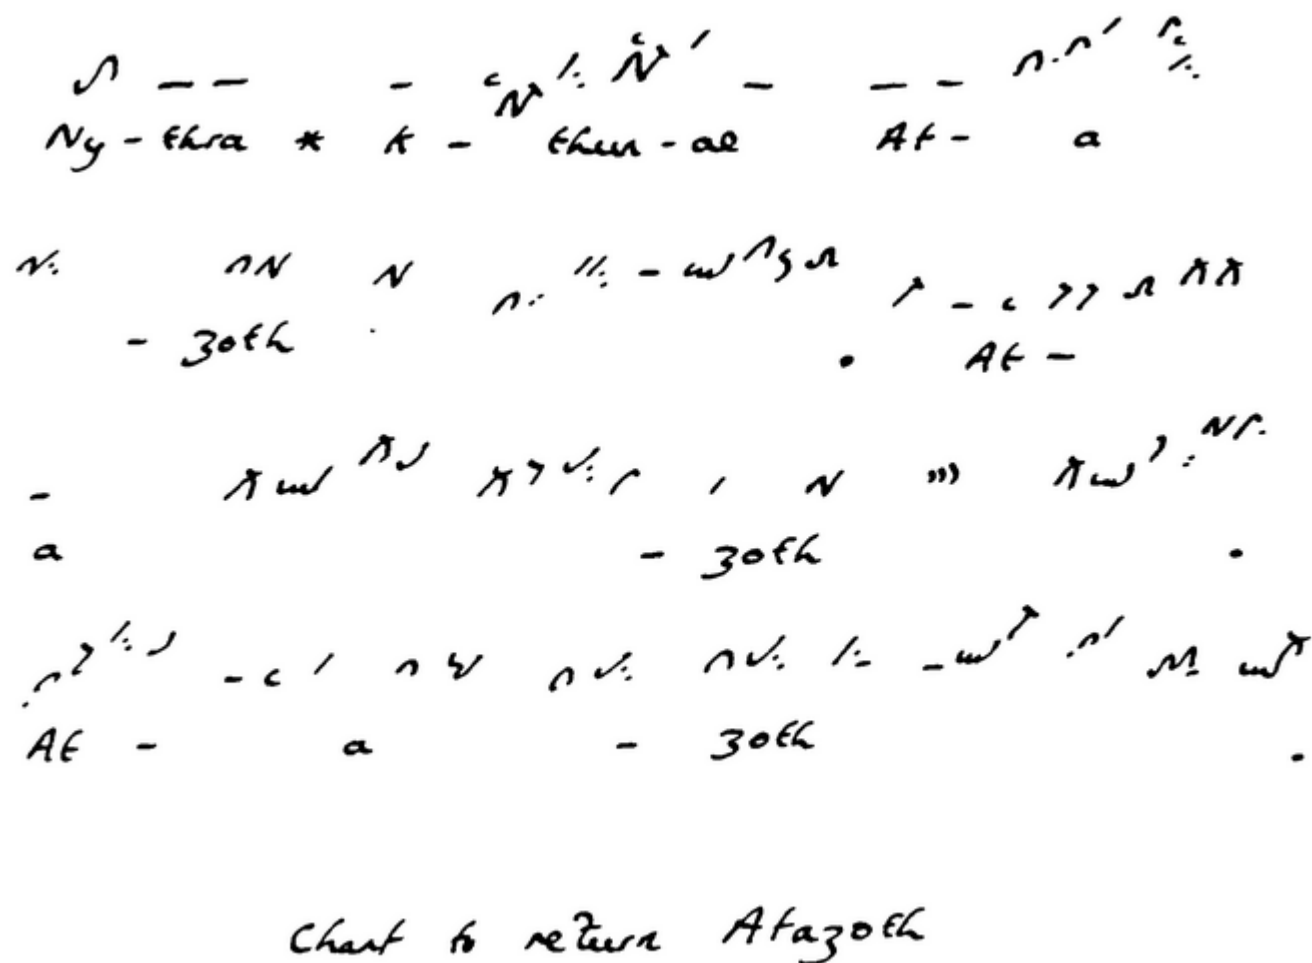 Ny - thra * k - thun - ae At - a
- zoth . At -
a - zoth .
At - a - zoth .
Chant to return Atazoth